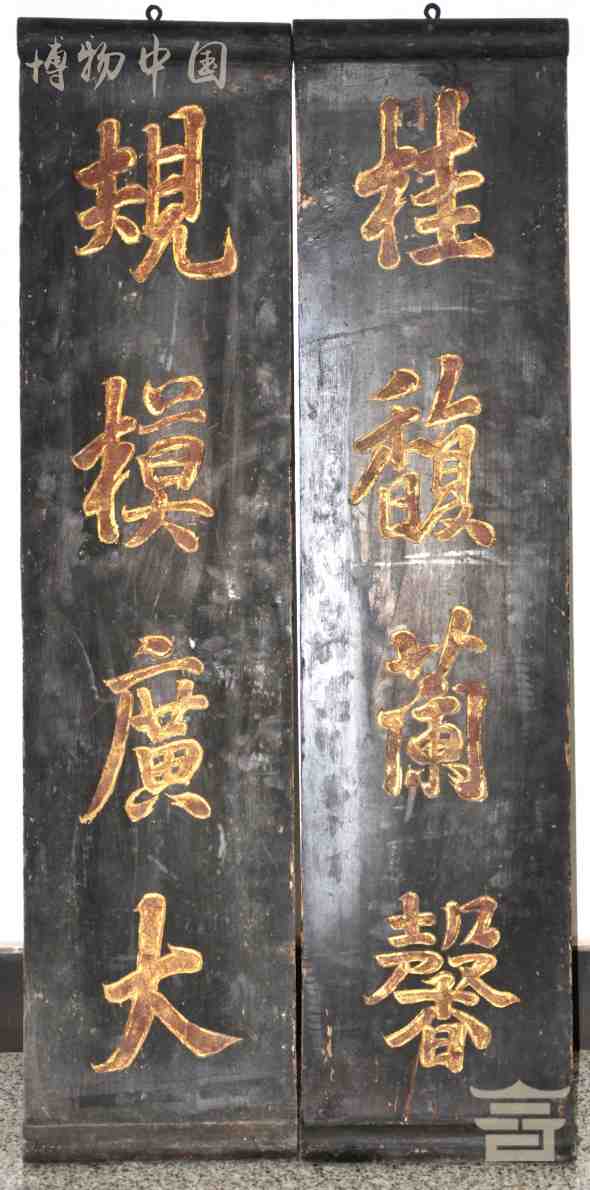 博物中国
桂馥蘭馨
規模廣大